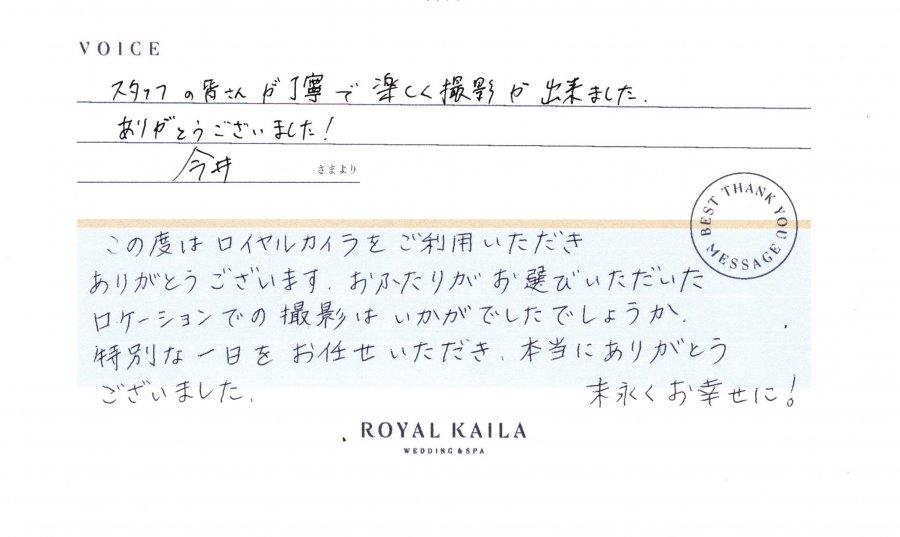 VOICE
スタッフの皆さんが丁寧で楽しく撮影が出来ました.
ありがとうございました!
今井 さまより
BEST THANK YOU MESSAGE
この度はロイヤルカイラをご利用いただき
ありがとうございます. おふたりがお選びいただいた
ロケーションでの撮影はいかがでしたでしょうか.
特別な一日をお任せいただき、本当にありがとう
ございました. 末永くお幸せに!
ROYAL KAILA
WEDDING & SPA